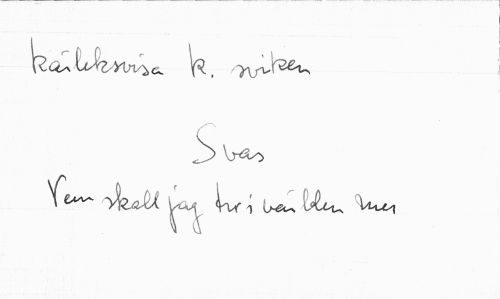 kärleksvisa k. sviken
Svas
Vem skall jag tro i världen mer